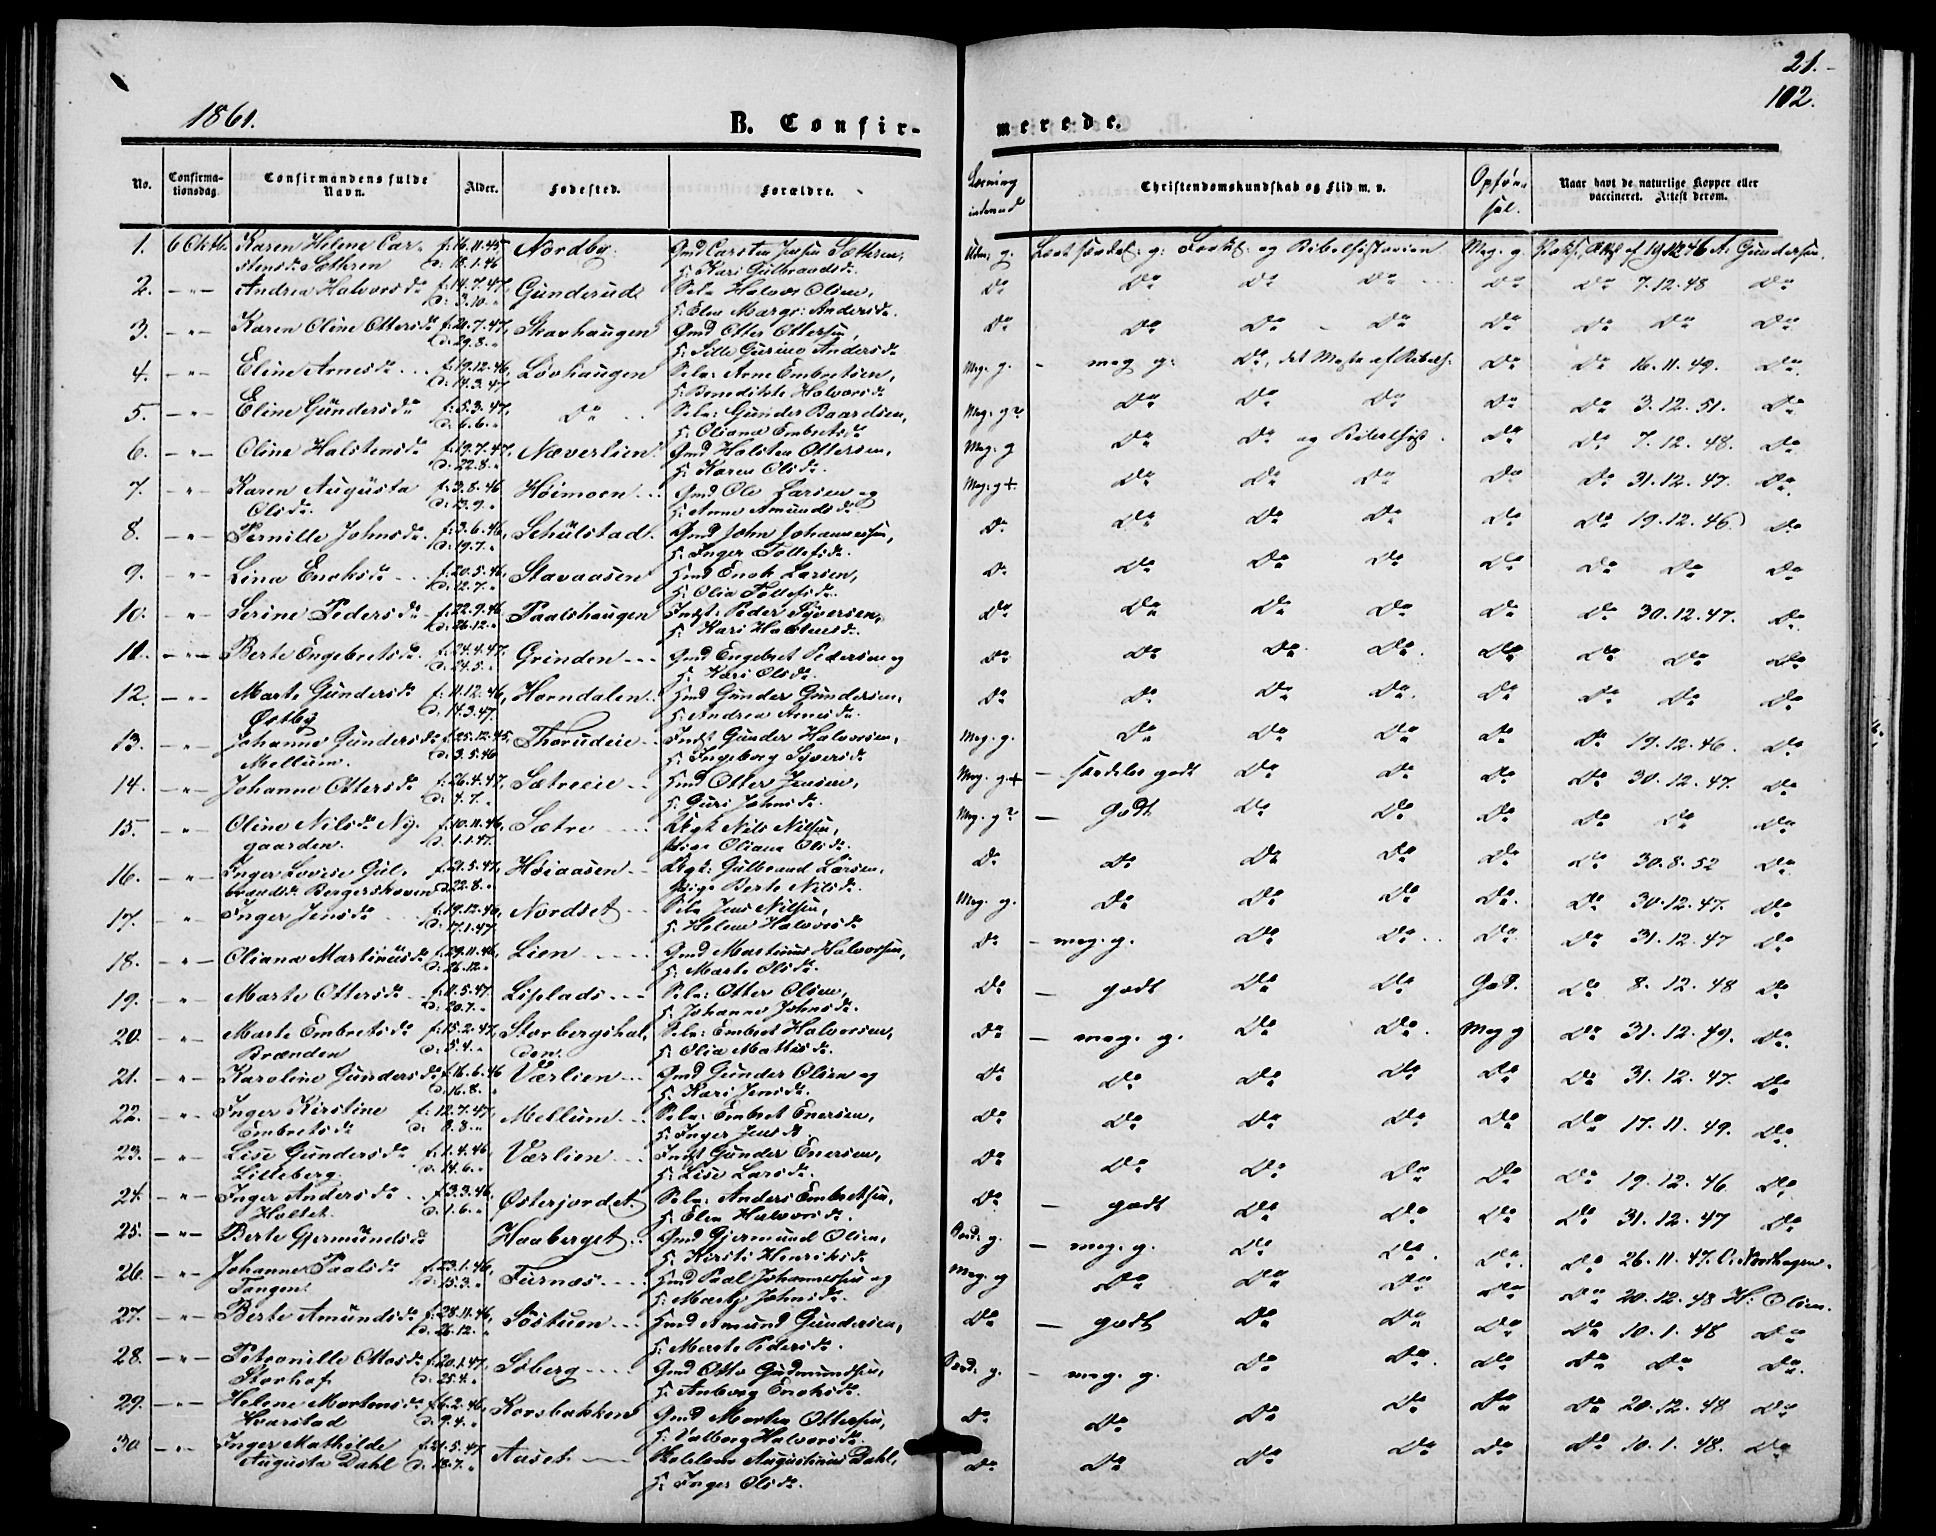 21.
102.
1861.
B. Confir-
merede.
No. Confirma-tionsdag. Confirmandens fulde Navn. Alder. Fødested. Forældre. Læsning indenad Christendomskundskab og Flid m. v. Opførsel. Naar havt de naturlige Kopper eller vaccineret. Attest derom.
1. 6 Oktb. Karen Helene Car- f: 16.11.45 Nordby. Gmd Carsten Jensen Sæthren, Udm. g. g: Forkl: og Bibelhistorien Meg. g 19.12.46 A. Gundersen.
stensdr Sæthren d: 18.1.46 h: Kari Gulbrandsdr.
2. — " — Andrea Halvorsdr f: 14.7.47, Gunderud Halvor Olsen, Do Do Do Do Do Do 7.12.48 Do
d: 3.10. " h: Elen Margr: Andersdr.
3. — " — Karen Oline Ottersdr f: 21.7.47, Skovhaugen Gmd Otter Ottersen, Do Do Do - Do Do Do Do Do
d: 29.8. " h: Sille Gurine Andersdr
4. — " — Eline Arnesdr f: 19.12.46, Løvhaugen Arne Embretsen, Meg. g. - meg g: Do, det Meste af Bibelh. Do Do 16.11.49. Do
d: 14.3.47 h: Benedikte Halvorsdr
5. — " — Eline Gundersdr f: 5.3.47, Do Gunder Baardsen, Meg. g? Do Do Do Do Do 3.12.51. Do
d: 6.6. " h: Oliana Embretsdr
6. — " — Oline Halstensdr f: 19.7.47, Næverlien Gmd Halsten Ottersen, Meg. g Do Do og Bibelhist. Do Do 7.12.48. Do
d: 22.8. " h: Karen Olsdr.
7. — " — Karen Augusta f: 3.8.46 Høimoen Gmd Ole Larsen og Meg. g+. Do Do Do Do Do 31.12.47. Do
Olsdr. d: 13.9. " h: Anne Amundsdr
8. — " — Pernille Johnsdr f: 3.6.46, Schulstad. Gmd John Johannessen, Do Do Do Do Do Do 19.12.46 Do
d: 19.7. " h: Inger Tollefsdr.
9. — " — Lina Enoksdr f: 20.5.46, Stavaasen Hmd Enok Larsen, Do Do Do Do Do Do Do Do
d: 12.7. " h: Olia Tollefsdr.
10. — " — Serine Pedersdr f: 22.9.46 Paalshaugen Indst: Peder Syversen, Do Do Do Do Do Do 30.12.47. Do
d: 26.12. " h: Kari Halstensdr.
11. — " — Berte Engebretsdr f: 24.4.47, Grinden Gmd Engebret Pedersen og Do Do Do Do Do Do Do Do
d: 24.5. " h: Kari Olsdr.
12. — " — Marte Gundersdr f: 11.12.46, Horndalen Hmd Gunder Gundersen, Do Do Do Do Do Do Do Do
Østby d: 14.3.47. h: Andrea Arnesdr.
13. — " — Johanne Gundersdr f: 25.12.45, Thorudeie Indst Gunder Halvorsen, Meg. g. Do Do Do Do Do 19.12.46. Do
Mellum. d: 3.5.46 h: Ingeborg Syversdr
14. — " — Johanne Ottersdr f: 26.4.47, Sætreeie Hmd Otter Jensen, Meg. g+ — særdeles godt Do Do Do Do 30.12.47. Do
d: 4.7. " h: Guri Johnsdr.
15. — " — Oline Nilsdr Ny- f: 10.11.46, Sætre Nils Nilsen, Meg. g? — godt Do Do Do Do Do Do
gaarden. d: 1.1.47. Pige Oliana Olsdr.
16. — " — Inger Lovise Gul- f: 21.5.47, Høiaasen Gulbrand Larsen, Do Do Do Do Do Do 30.8.52 Do
brandsdr Bergerskoven d: 22.8. " Pige Berte Nilsdr.
17. — " — Inger Jensdr f: 19.12.46, Nordset Jens Nilsen, Meg. g. Do Do Do Do Do 30.12.47. Do
d: 17.1.47 h: Helene Halvorsdr
18. — " — Oliana Martinusdr f: 29.11.46, Lien Gmd Martinus Halvorsen, Do — meg. g. Do Do Do Do 31.12.47 Do
d: 26.12. " h: Marte Olsdr.
19. — " — Marte Ottersdr f: 11.5.47 Lisplads Otter Olsen, Do — godt Do Do God. Do 8.12.48 Do
d: 20.7. " h: Johanne Johnsdr.
20. — " — Marte Embretsdr f: 15.2.47, Storbergshol- Embret Halvorsen, Do — meg. g. Do Do Meg g Do 31.12.49. Do
Brænden d: 5.4. " den. h: Olia Mattisdr.
21. — " — Karoline Gundersdr f: 16.6.46 Værlien Gmd Gunder Olsen og Do Do Do Do Do Do 31.12.47. Do
d: 16.8. " h: Kari Jensdr.
22. — " — Inger Kirstine f: 12.7.47, Mellum Embret Enersen, Do Do Do Do Do Do 17.11.49. Do
Embretsdr d: 8.8. " h: Inger Jensdr.
23. — " — Lise Gundersdr f: 1.4.46, Værlien Indst Gunder Enersen, Do Do Do Do Do Do 19.12.46 Do
Lilleberg. d: 14.6. " h: Lise Larsdr.
24. — " — Inger Andersdr f: 3.3.46, Østerjordet. Anders Embretsen, Do — godt Do Do Do Do 31.12.47 Do
Holtet. d: 1.6. " h: Elen Halvorsdr.
25. — " — Berte Gjermundsdr Haaberget Gmd Gjermund Olsen, g. — meg. g. Do Do Do Do 26.11.47. C. Nordhagen.
h: Kirsti Henriksdr
26. — " — Johanne Paalsdr f: 23.1.46, Furnæs Hmd Paal Johannessen og Meg. g Do Do Do Do Do 20.12.48 H: Olsen.
Tangen. d: 15.3. " h: Marthe Johnsdr.
27. — " — Berte Amundsdr f: 28.11.46, Søstuen Hmd Amund Gundersen, Do — godt Do Do Do Do 10.1.48 Do
d: 26.12. " h: Marte Pedersdr.
28. — " — Petronille Ottosdr f: 20.1.47, Søberg Gmd Otto Gudmundsen, g. — meg. g. Do Do Do Do Do Do
Storhof. d: 25.4. " h: Anborg Enoksdr.
29. — " — Helene Mortensdr f: 6.2.46, Korsbakken Gmd Morten Ottersen, Do Do Do Do Do Do 20.12.48 Do
Kvarstad d: 9.4. " h: Valborg Halvorsdr.
30 — " — Inger Mathilde f: 21.5.47 Aaset Augustinus Dahl, Do Do Do Do Do Do 10.1.48. Do
Augusta Dahl d: 18.7. " h: Inger Olsdr.